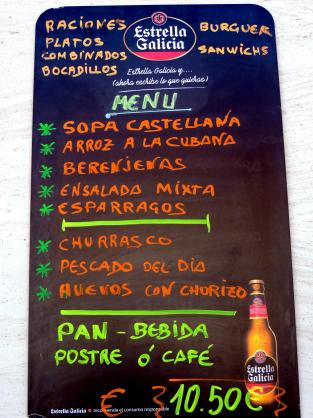 RACIONES
PLATOS
COMBINADOS
BOCADILLOS
Estrella
Galicia
BURGUER
SANWICHS
Estrella Galicia y....
(ahora escribe lo que quieras)
MENU
* SOPA CASTELLANA
* ARROZ A LA CUBANA
* BERENJENAS
* ENSALADA MIXTA
* ESPARRAGOS
* CHURRASCO
* PESCADO DEL DIA
* HUEVOS CON CHORIZO
PAN - BEBIDA
POSTRE Ó CAFÉ
Estrella
Galicia
Estrella Galicia recomienda el consumo responsable
€ 3 10.50€ 3